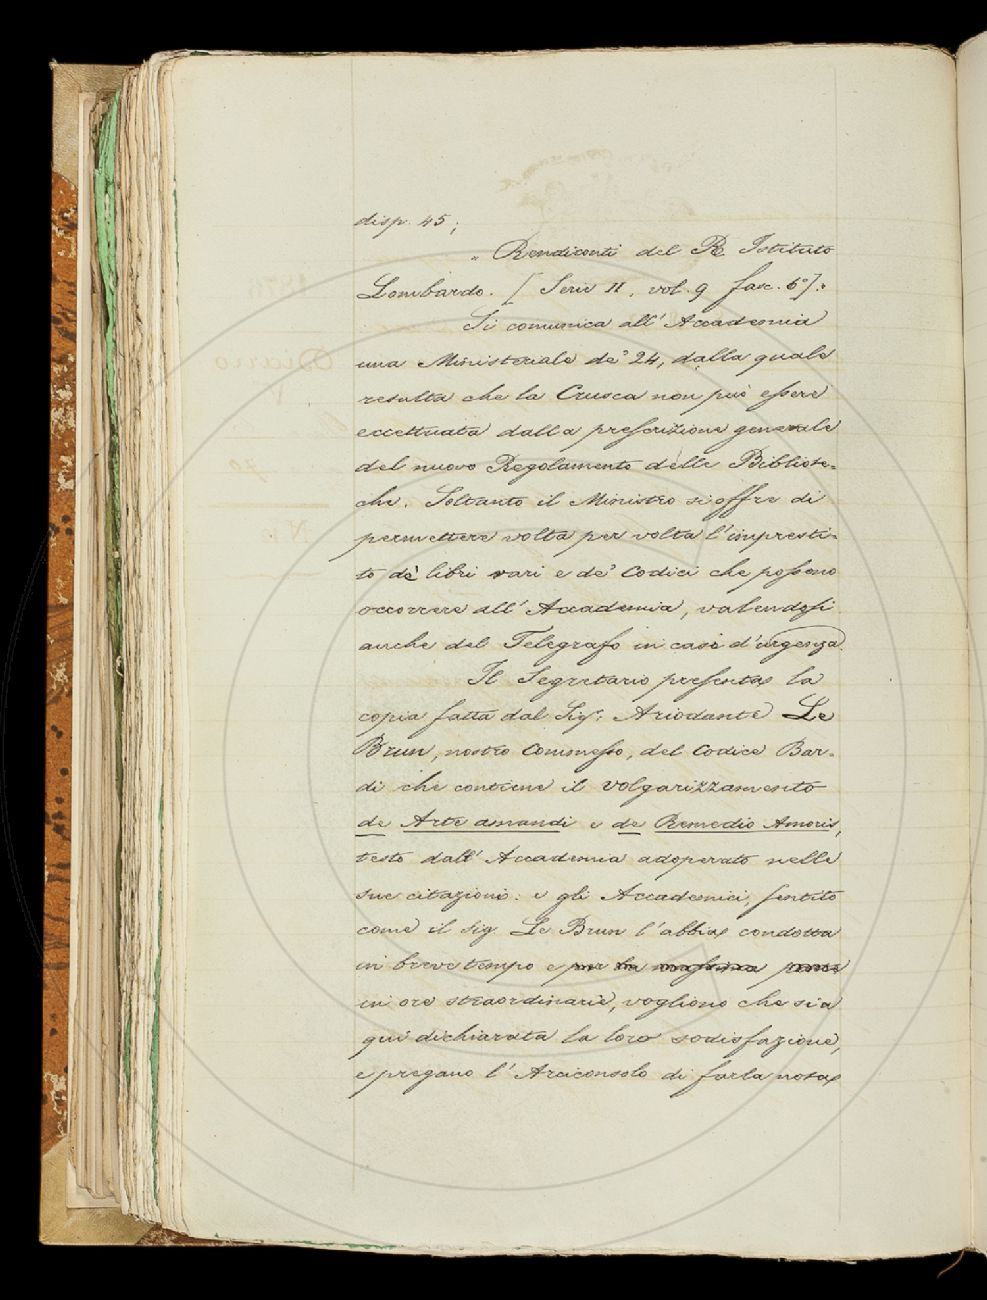 disp. 45;
„ Rendiconti del R. Istituto
Lombardo. [Serie II, vol. 9 fasc. 6°].
Si comunica all'Accademia
una Ministeriale de' 24, dalla quale
resulta che la Crusca non può essere
eccettuata dalla prescrizione generale
del nuovo Regolamento delle Bibliote-
che. Soltanto il Ministro si offre di
permettere volta per volta l'impresti-
to de' libri rari e de' Codici che possono
occorrere all'Accademia, valendosi
anche del Telegrafo in casi d'urgenza.
Il Segretario presenta la
copia fatta dal Sigr. Ariodante Le
Brun, nostro Commesso, del Codice Bar-
di che contiene il volgarizzamento
de Arte amandi e de Remedio Amoris,
testo dall'Accademia adoperato nelle
sue citazioni: e gli Accademici, sentito
come il sig. Le Brun l'abbia condotta
in breve tempo e per la massima parte
in ore straordinarie, vogliono che sia
qui dichiarata la loro sodisfazione,
e pregano l'Arciconsolo di farla nota